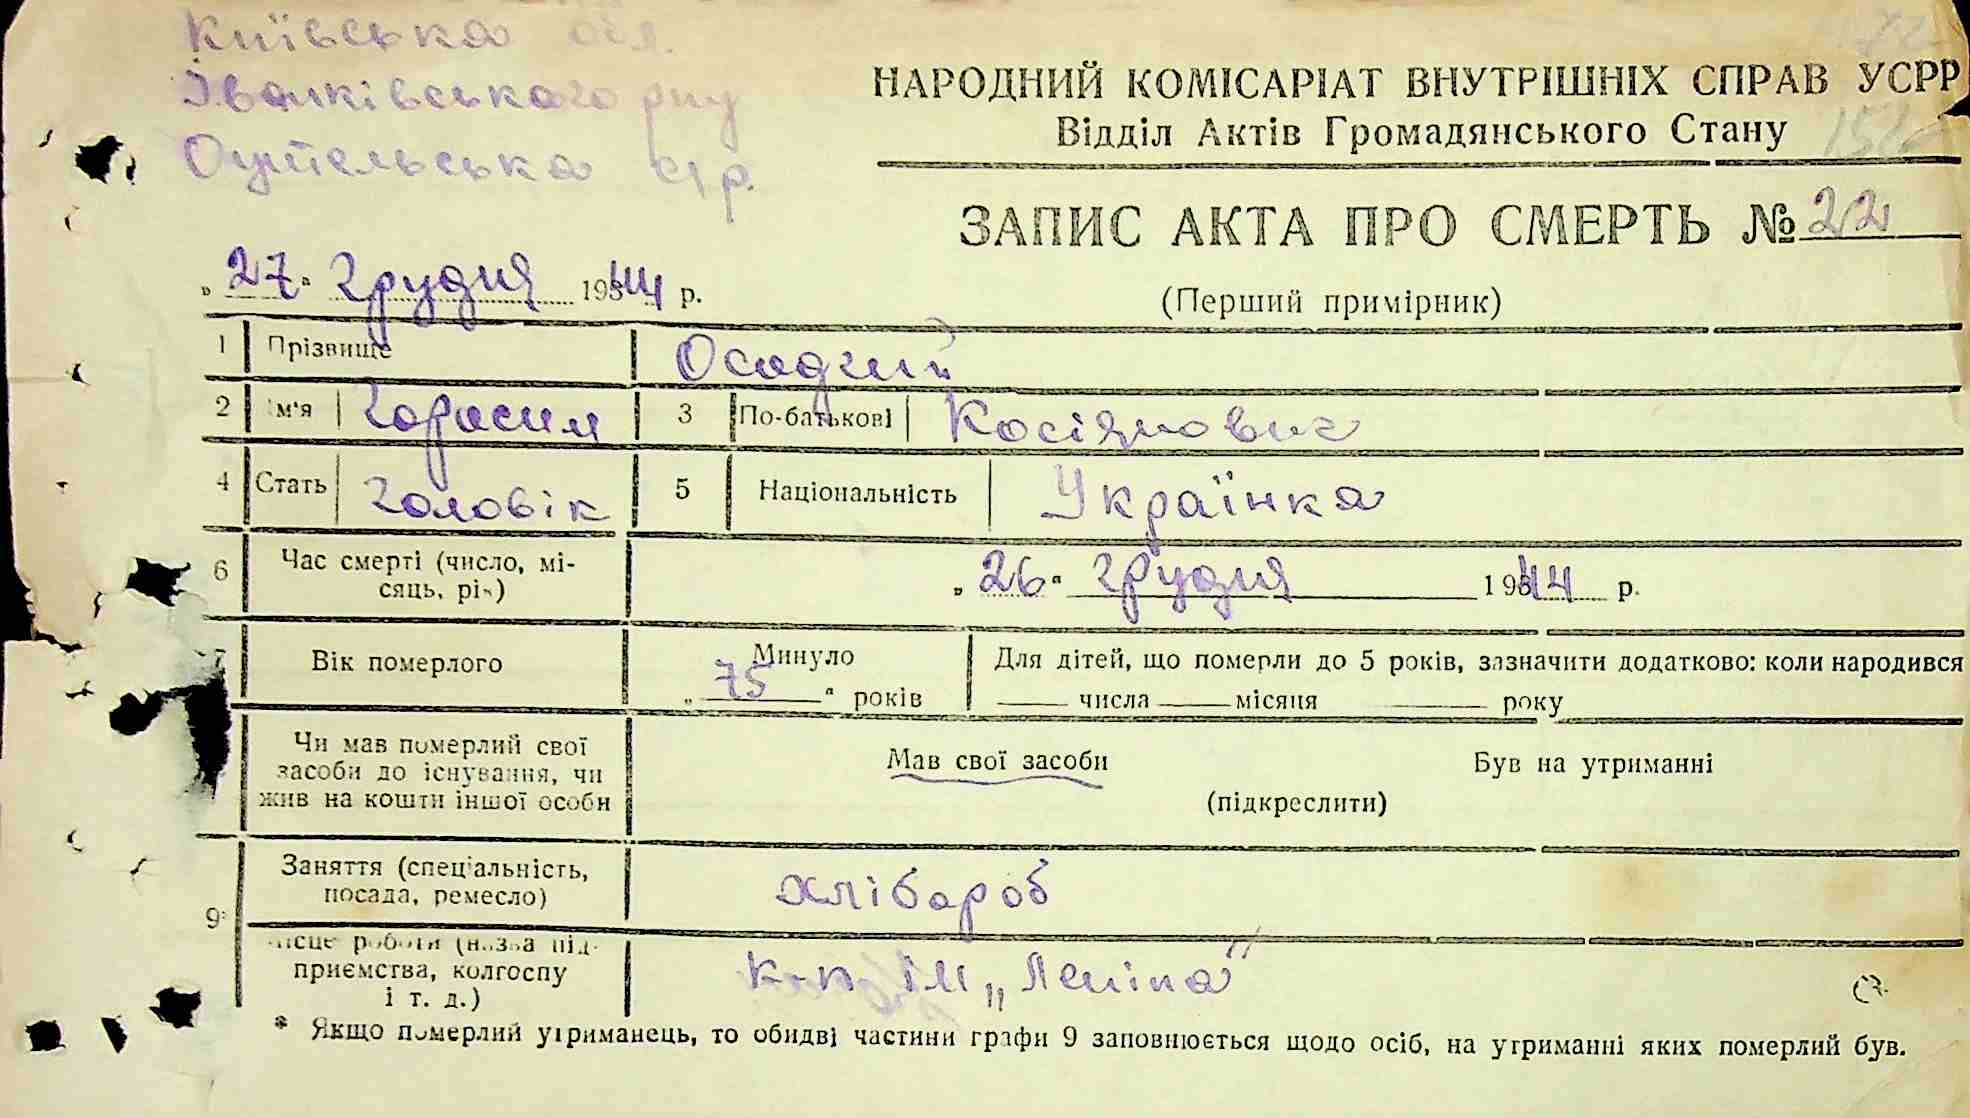 Київська обл.
Іванківського р-ну
НАРОДНИЙ КОМІСАРІАТ ВНУТРІШНІХ СПРАВ УСРР
Відділ Актів Громадянського Стану
ЗАПИС АКТА ПРО СМЕРТЬ № 22
„27" грудня 1944 р.
(Перший примірник)
1 Прізвище Осадчий
2 Ім'я Гарасим 3 По-батькові Косіянович
4 Стать Чоловік 5 Національність Українка
6 Час смерті (число, мі-
сяць, рік) „26" грудня 1944 р.
7 Вік померлого Минуло
„75" років
Для дітей, що померли до 5 років, зазначити додатково: коли народився
числа місяця року
Чи мав померлий свої
засоби до існування, чи
жив на кошти іншої особи
Мав свої засоби Був на утриманні
(підкреслити)
9* Заняття (спеціальність,
посада, ремесло) хлібароб
місце роботи (назва під-
приємства, колгоспу
і т. д.) к-п ім „Леніна"
* Якщо померлий утриманець, то обидві частини графи 9 заповнюється щодо осіб, на утриманні яких померлий був.